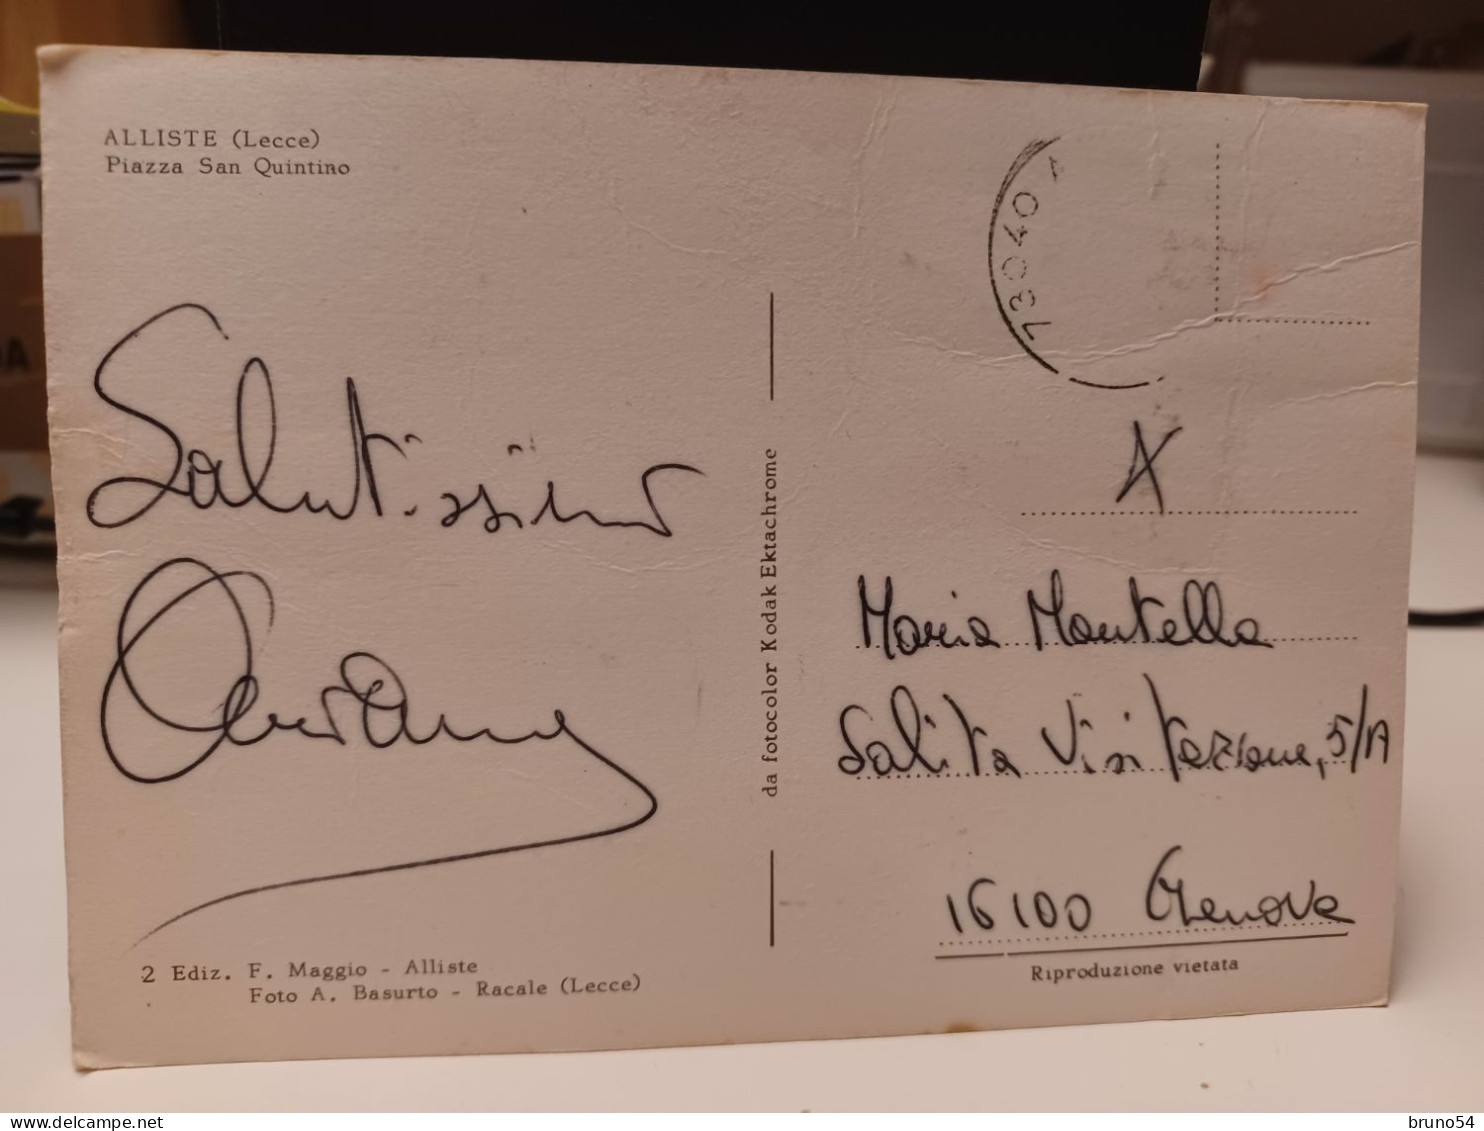 ALLISTE (Lecce)
Piazza San Quintino
Salutissimi
2 Ediz. F. Maggio - Alliste
Foto A. Basurto - Racale (Lecce)
da fotocolor Kodak Ektachrome
73040 A
A
Maria Mantella
Salita Visitazione, 5/A
16100 Genova
Riproduzione vietata
bruno54